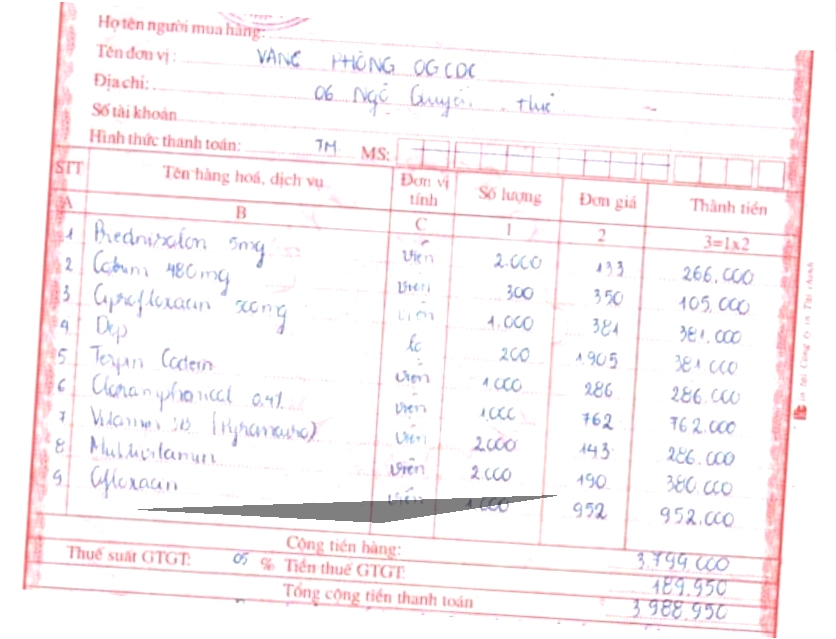 Họ tên người mua hàng:
Tên đơn vị: VĂNG PHÒNG OGCDC
Địa chỉ: 06 Ngô Quyền. Huế
Số tài khoản
Hình thức thanh toán: TM MS:
STT Tên hàng hoá, dịch vụ Đơn vị tính Số lượng Đơn giá Thành tiền
A B C 1 2 3=1x2
1 Prednisalon 5mg Viên 2.000 133 266.000
2 Cotrim 480mg Viên 300 350 105.000
3 Ciprofloxacin 500mg Viên 1.000 381 381.000
4 Dep lọ 200 1.905 381000
5 Terpin Codein Viên 1000 286 286.000
6 Cloramphonicol 0.4% Viên 1.000 762 762.000
7 Vitamin 3B Viên 2000 143 286.000
8 Multivitamin Viên 2000 190 380.000
9 Ofloxacin Viên 1.000 952 952.000
Cộng tiền hàng: 3.799.000
Thuế suất GTGT: 05 % Tiền thuế GTGT: 189.950
Tổng cộng tiền thanh toán 3.988.950